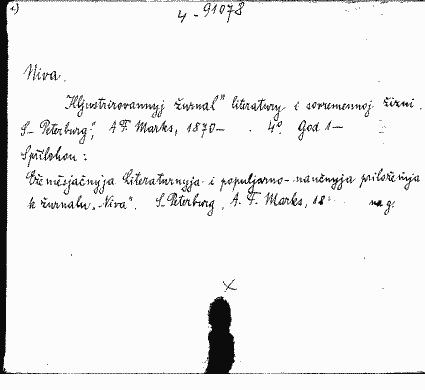 4 - 91078
Niva.
Illjustrirovannyj žurnal" literatury i sovremennoj žizni.
S-Peterburg", A F. Marks, 1870- . 4° God 1-
S přílohou:
Ežeměsjačnyja literaturnyja i populjarno-naučnyja priloženija
k žurnalu „Niva". S-Peterburg, A. F. Marks, 18
x